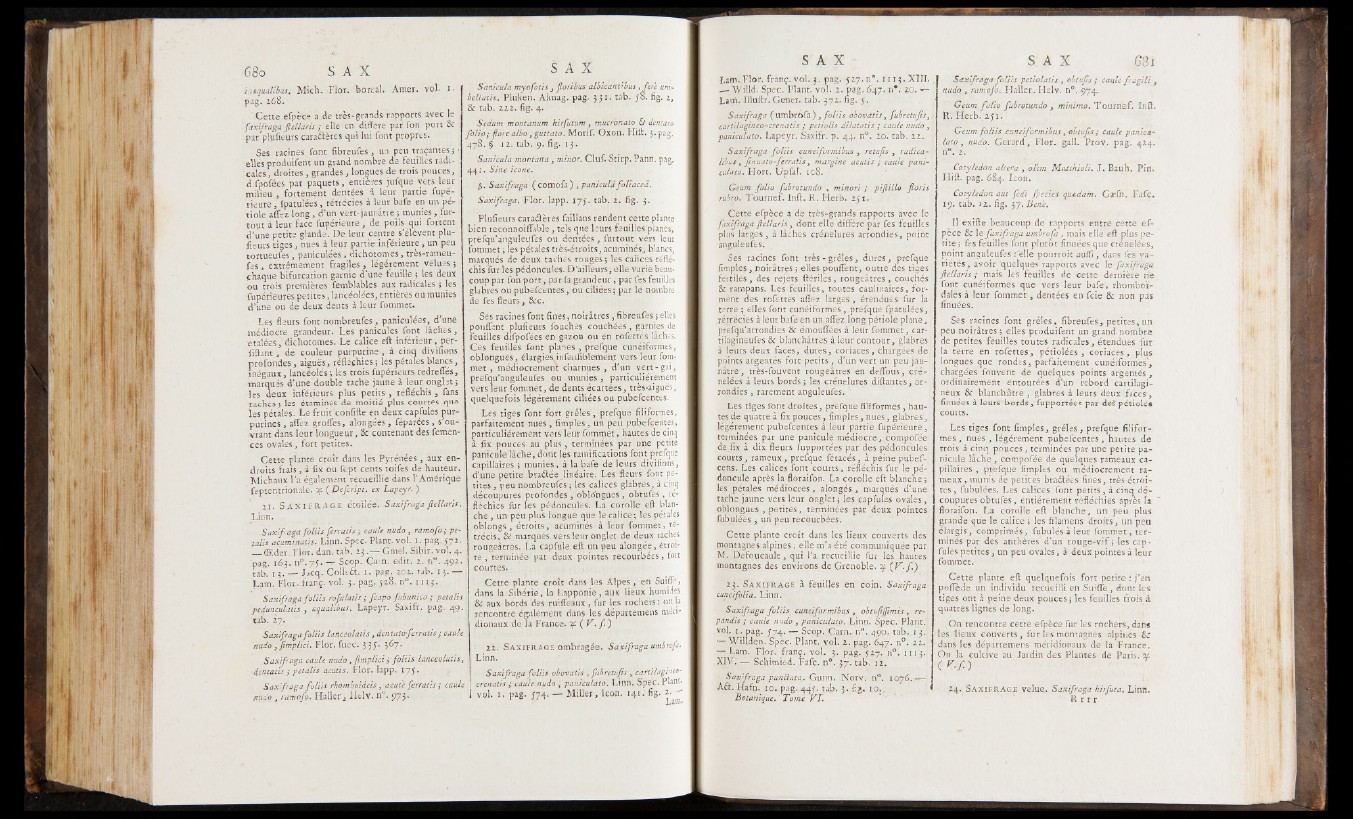 680 S A X
inæqualibus. Mich. Flor. boreal. Amer. vol. 1.
pag. 268.
Cette eſpèce a de très-grands rapports avec le
ſaxifraga ſtellaris ; elle en diffère par ſon port &
par pluſieurs caractères qui lui ſont propres.
Ses racines ſont fibreuſes, un peu traçantes ;
elles produiſent un grand nombre de feuilles radi-
cales, droites, grandes, longues de trois pouces,
diſpoſées par paquets, entières juſque vers leur
milieu, fortement dentées à leur partie ſupé-
rieure, ſpatulées, rétrécies à leur baſe en un pé-
tiole aſſez long, d'un vert-jaunâtre ; munies, ſur-
tout à leur face ſupérieure, de poils qui ſortent
d'une petite glande. De leur centre s'élèvent plu-
ſieurs tiges, nues à leur partie inférieure, un peu
tortueuſes, paniculées, dichotomes, très-rameu-
ſes, extrêmement fragiles, légérement velues ;
chaque bifurcation garnie d'une feuille ; les deux
ou trois premières ſemblables aux radicales ; les
ſupérieures petites, lancéolées, entières ou munies
d'une ou de deux dents à leur ſommet.
Les fleurs ſont nombreuſes, paniculées, d'une
médiocre grandeur. Les panicules ſont lâches,
étalées, dichotomes. Le calice eſt inférieur, per-
ſiſtant, de couleur purpurine, à cinq diviſions
profondes, aiguës, réfléchies ; les pétales blancs,
inégaux, lancéolés ; les trois ſupérieurs redreſſés,
marqués d'une double tache jaune à leur onglet ;
les deux inférieurs plus petits, réfléchis, ſans
taches ; les étamines de moitié plus courtes que
les pétales. Le fruit conſiſte en deux capſules pur-
purines, aſſez groſſes, alongées, ſéparées, s'ou-
vrant dans leur longueur, & contenant des ſemen-
ces ovales, fort petites.
Cette plante croît dans les Pyrénées, aux en-
droits frais, à ſix ou ſept cents toiſes de hauteur.
Michaux l'a également recueillie dans l'Amérique
ſeptentrionale. ♃ ( Deſcript. ex Lapeyr. )
21. SAXIFRAGE étoilée. Saxifraga ſtellaris.
Linn.
Saxifraga foliis ſerratis ; caule nudo, ramoſo ; pe-
talis acuminatis. Linn. Spec. Plant. vol. 1. pag. 572.
— Œder. Flor. dan. tab. 23. — Gmel. Sibir. vol. 4.
pag. 163. n°. 75. — Scop. Carn. edit. 2. n°. 492.
tab. 13. — Jacq. Collect. 1. pag. 202. tab. 13. —
Lam. Flor. franç. vol. 3. pag. 528. n°. 1113.
Saxifraga foliis roſulatis ; ſcapo ſubunico ; petalis
pedunculatis, æqualibus. Lapeyr. Saxifr. pag. 49.
tab. 27.
Saxifraga foliis lanceolatis, dentato-ſerratis ; caule
nudo, ſimplici. Flor. ſuec. 335. 367.
Saxifraga caule nudo, ſimplici ; foliis lanceolatis,
dentatis ; petalis acutis. Flor. lapp. 175.
Saxifraga foliis rhomboideis, acutè ſerratis ; caule
nudo, ramoſo. Haller, Helv. n°. 973.
S A X
Sanicula myoſotis, floribus albicantibus, ferè um-
bellatis. Pluken. Almag. pag. 331. tab. 58. fig. 2,
& tab. 222. fig. 4.
Sedum montanum hirſutum, mucronato & dentato
folio ; flore albo, guttato. Moriſ. Oxon. Hiſt. 3. pag.
478. § 12. tab. 9. fig. 13.
Sanicula montana, minor. Cluſ. Stirp. Pann. pag.
441. Sine icone.
β. Saxifraga ( comoſa ), paniculâ foliaceâ.
Saxifraga. Flor. lapp. 175. tab. 2. fig. 3.
Pluſieurs caractères ſaillans rendent cette plante
bien reconnoiſſable, tels que leurs feuilles planes,
preſqu'anguleuſes ou dentées, ſurtout vers leur
ſommet ; les pétales très-étroits, acuminés, blancs,
marqués de deux taches rouges ; les calices réflé-
chis ſur les pédoncules. D'ailleurs, elle varie beau-
coup par ſon port, par ſa grandeur, par ſes feuilles
glabres ou pubeſcentes, ou ciliées ; par le nombre
de ſes fleurs, &c.
Ses racines ſont fines, noirâtres, fibreuſes ; elles
pouſſent pluſieurs ſouches couchées, garnies de
feuilles diſpoſées en gazon ou en roſettes lâches.
Ces feuilles ſont planes, preſque cunéiformes,
oblongues, élargies inſenſiblement vers leur ſom-
met, médiocrement charnues, d'un vert-gai,
preſqu'anguleuſes ou munies, particuliérement
vers leur ſommet, de dents écartées, très-aiguës,
quelquefois légérement ciliées ou pubeſcentes.
Les tiges ſont fort grêles, preſque filiformes,
parfaitement nues, ſimples, un peu pubeſcentes,
particuliérement vers leur ſommet, hautes de cinq
à ſix pouces au plus, terminées par une petite
panicule lâche, dont les ramifications ſont preſque
capillaires ; munies, à la baſe de leurs diviſions,
d'une petite bractée linéaire. Les fleurs ſont pe-
tites, peu nombreuſes ; les calices glabres, à cinq
découpures profondes, oblongues, obtuſes, ré-
fléchies ſur les pédoncules. La corolle eſt blan-
che, un peu plus longue que le calice ; les pétales
oblongs, étroits, acuminés à leur ſommet, ré-
trécis, & marqués vers leur onglet de deux taches
rougeâtres. La capſule eſt un peu alongée, étroi-
te, terminée par deux pointes recourbées, fort
courtes.
Cette plante croît dans les Alpes, en Suiſſe,
dans la Sibérie, la Lapponie, aux lieux humides
& aux bords des ruiſſeaux, ſur les rochers : on la
rencontre également dans les départemens méri-
dionaux de la France. ♃ ( V. ſ. )
22. SAXIFRAGE ombragée. Saxifraga umbroſa.
Linn.
Saxifraga foliis obovatis, ſubretuſis, cartilagineo-
crenatis ; caule nudo, paniculato. Linn. Spec. Plant.
vol. 1. pag. 574. — Miller, Icon. 141. fig. 2. —
Lam.
S A X
Lam. Flor. franç. vol. 3. pag. 527. n°. 1113. XIII.
— Willd. Spec. Plant. vol. 2. pag. 647. n°. 20. —
Lam. Illuſtr. Gener. tab. 372. fig. 5.
Saxifraga ( umbroſa ), foliis obovatis, ſubretuſis,
cartilagineo-crenatis ; petiolis dilatatis ; caule nudo,
paniculato. Lapeyr. Saxifr. p. 44. n°. 20. tab. 22.
Saxifraga foliis cuneiformibus, retuſis, radica-
libus, ſinuato-ſerratis, margine acutis ; caule pani-
culato. Hort. Upſal. 108.
Geum folio ſubrotundo, minori ; piſtillo floris
rubro. Tournef. Inſt. R. Herb. 251.
Cette eſpèce a de très-grands rapports avec le
ſaxifraga ſtellaris, dont elle diffère par ſes feuilles
plus larges, à lâches crénelures arrondies, point
anguleuſes.
Ses racines ſont très-grêles, dures, preſque
ſimples, noirâtres ; elles pouſſent, outre des tiges
fertiles, des rejets ſtériles, rougeâtres, couchés
& rampans. Les feuilles, toutes caulinaires, for-
ment des roſettes aſſez larges, étendues ſur la
terre ; elles ſont cunéiformes, preſque ſpatulées,
rétrécies à leur baſe en un aſſez long pétiole plane,
preſqu'arrondies & émouſſées à leur ſommet, car-
tilagineuſes & blanchâtres à leur contour, glabres
à leurs deux faces, dures, coriaces, chargées de
points argentés fort petits, d'un vert un peu jau-
nâtre, très-ſouvent rougeâtres en deſſous, cré-
nelées à leurs bords ; les crénelures diſtantes, ar-
rondies, rarement anguleuſes.
Les tiges ſont droites, preſque filiformes, hau-
tes de quatre à ſix pouces, ſimples, nues, glabres,
légérement pubeſcentes à leur partie ſupérieure,
terminées par une panicule médiocre, compoſée
de ſix à dix fleurs ſupportées par des pédoncules
courts, rameux, preſque ſétacés, à peine pubeſ-
cens. Les calices ſont courts, réfléchis ſur le pé-
doncule après la floraiſon. La corolle eſt blanche ;
les pétales médiocres, alongés, marqués d'une
tache jaune vers leur onglet ; les capſules ovales,
oblongues, petites, terminées par deux pointes
ſubulées, un peu recourbées.
Cette plante croît dans les lieux couverts des
montagnes alpines ; elle m'a été communiquée par
M. Deſoucaule, qui l'a recueillie ſur les hautes
montagnes des environs de Grenoble. ♃ (V. ſ.)
23. SAXIFRAGE à feuilles en coin. Saxifraga
cuneifolia. Linn.
Saxifraga foliis cuneiformibus, obtuſiſſimis, re-
pandis ; caule nudo, paniculato. Linn. Spec. Plant.
vol. 1. pag. 574. — Scop. Carn. n°. 490. tab. 13.
— Willden. Spec. Plant. vol. 2. pag. 647. n°. 22.
— Lam. Flor. franç. vol. 3. pag. 527. n°. 1113.
XIV. — Schmied. Faſc. n°. 37. tab. 12.
Saxifraga punctata. Gunn. Norv. n°. 1076. —
Act. Hafn. 10. pag. 445. tab. 3. fig. 10.
Botanique. Tome VI.
S A X 681
Saxifraga foliis petiolatis, obtuſis ; caule fragili,
nudo, ramoſo. Haller. Helv. n°. 974.
Geum folio ſubrotundo, minimo. Tournef. Inſt.
R. Herb. 251.
Geum foliis cuneiformibus, obtuſis ; caule panicu-
lato, nudo. Gerard, Flor. gall. Prov. pag. 424.
n°. 2.
Cotyledon altera, olim Matthioli. J. Bauh. Pin.
Hiſt. pag. 684. Icon.
Cotyledon aut ſedi ſpecies quædam. Gæſn. Faſc.
19. tab. 12. fig. 37. Benè.
Il exiſte beaucoup de rapports entre cette eſ-
pèce & le ſaxifraga umbroſa, mais elle eſt plus pe-
tite ; ſes feuilles ſont plutôt ſinuées que crénelées,
point anguleuſes : elle pourroit auſſi, dans ſes va-
riétés, avoir quelques rapports avec le ſaxifraga
ſtellaris ; mais les feuilles de cette dernière ne
ſont cunéiformes que vers leur baſe, rhomboï-
dales à leur ſommet, dentées en ſcie & non pas
ſinuées.
Ses racines ſont grêles, fibreuſes, petites, un
peu noirâtres ; elles produiſent un grand nombre
de petites feuilles toutes radicales, étendues ſur
la terre en roſettes, pétiolées, coriaces, plus
longues que rondes, parfaitement cunéiformes,
chargées ſouvent de quelques points argentés,
ordinairement entourées d'un rebord cartilagi-
neux & blanchâtre, glabres à leurs deux faces,
ſinuées à leurs bords, ſupportées par des pétioles
courts.
Les tiges ſont ſimples, grêles, preſque filifor-
mes, nues, légérement pubeſcentes, hautes de
trois à cinq pouces, terminées par une petite pa-
nicule lâche, compoſée de quelques rameaux ca-
pillaires, preſque ſimples ou médiocrement ra-
meux, munis de petites bractées fines, très-étroi-
tes, ſubulées. Les calices ſont petits, à cinq dé-
coupures obtuſes, entiérement réfléchies après la
floraiſon. La corolle eſt blanche, un peu plus
grande que le calice ; les filamens droits, un peu
élargis, comprimés, ſubulés à leur ſommet, ter-
minés par des anthères d'un rouge-vif ; les cap-
ſules petites, un peu ovales, à deux pointes à leur
ſommet.
Cette plante eſt quelquefois fort petite : j'en
poſſède un individu recueilli en Suiſſe, dont les
tiges ont à peine deux pouces ; les feuilles trois à
quatres lignes de long.
On rencontre cette eſpèce ſur les rochers, dans
les lieux couverts, ſur les montagnes alpines &
dans les départemens méridionaux de la France.
On la cultive au Jardin des Plantes de Paris. ♃
( V. ſ. )
24. SAXIFRAGE velue. Saxifraga hirſuta. Linn.
R r r r